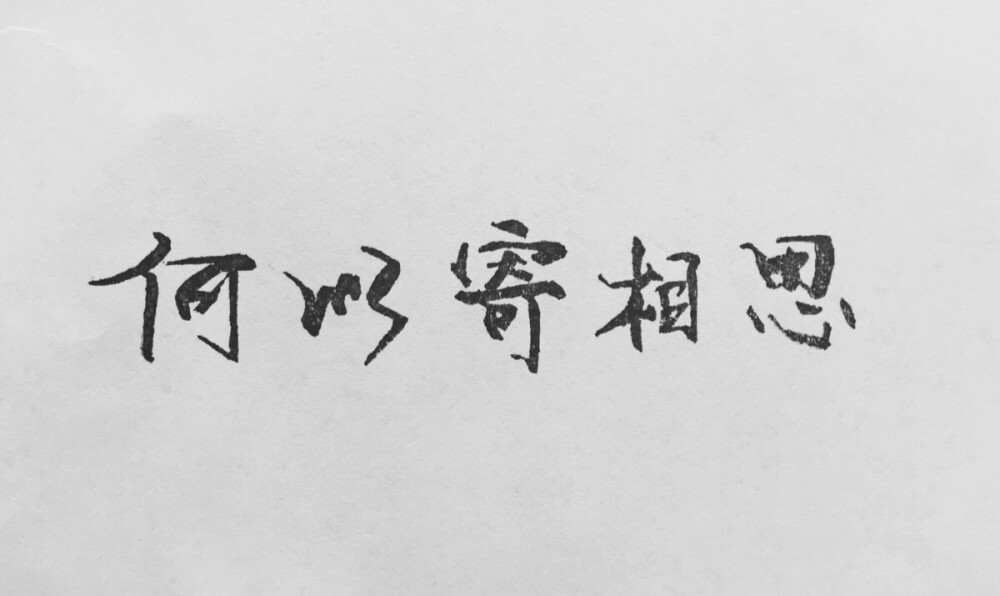 何以寄相思